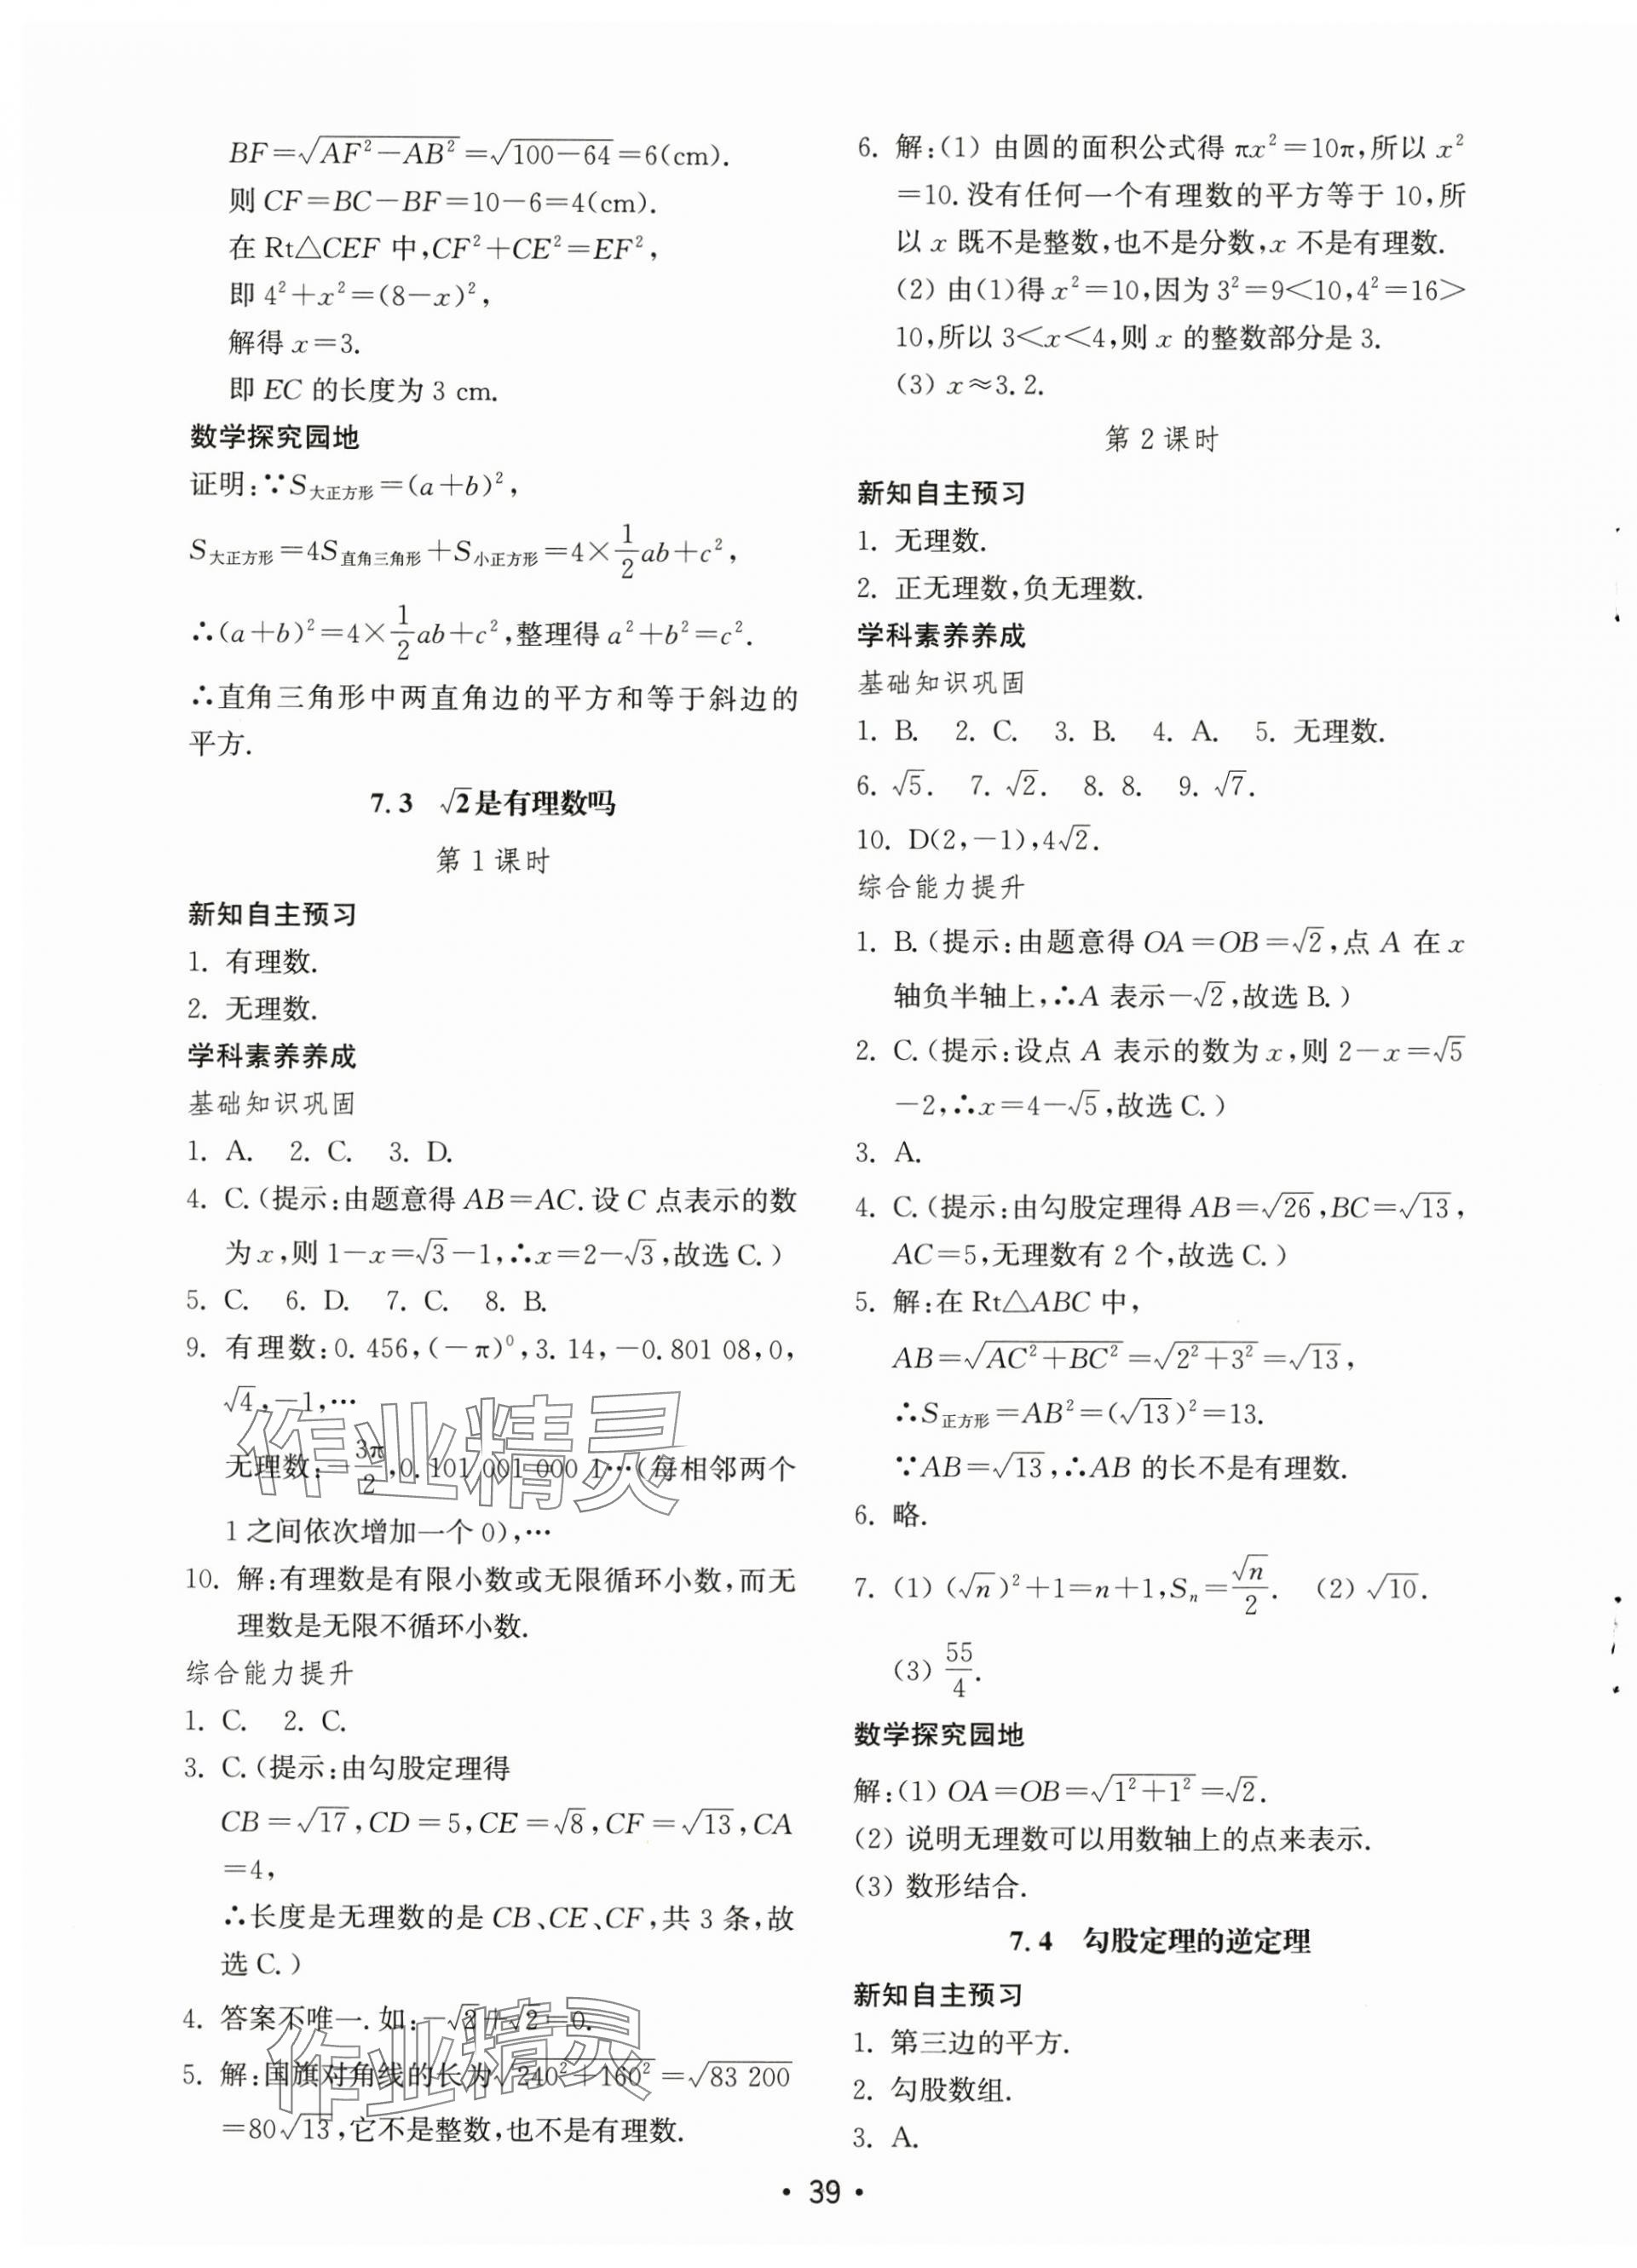 BF=√(AF²−AB²)=√(100−64)=6(cm).
则 CF=BC−BF=10−6=4(cm).
在 Rt△CEF 中,CF²+CE²=EF²,
即 4²+x²=(8−x)²,
解得 x=3.
即 EC 的长度为 3 cm.
数学探究园地
证明:∵S大正方形=(a+b)²,
S大正方形=4S直角三角形+S小正方形=4×1/2ab+c²,
∴(a+b)²=4×1/2ab+c²,整理得 a²+b²=c².
∴直角三角形中两直角边的平方和等于斜边的
平方.
7.3 √2是有理数吗
第 1 课时
新知自主预习
1. 有理数.
2. 无理数.
学科素养养成
基础知识巩固
1. A. 2. C. 3. D.
4. C.(提示:由题意得 AB=AC.设 C 点表示的数
为 x,则 1−x=√3−1,∴x=2−√3,故选 C.)
5. C. 6. D. 7. C. 8. B.
9. 有理数:0.456,(−π)⁰,3.14,−0.801 08,0,
√4,−1,…
无理数:−3π/2,0.101 001 000 1…(每相邻两个
1 之间依次增加一个 0),…
10. 解:有理数是有限小数或无限循环小数,而无
理数是无限不循环小数.
综合能力提升
1. C. 2. C.
3. C.(提示:由勾股定理得
CB=√17,CD=5,CE=√8,CF=√13,CA
=4,
∴长度是无理数的是 CB、CE、CF,共 3 条,故
选 C.)
4. 答案不唯一.如:−√2+√2=0.
5. 解:国旗对角线的长为√(240²+160²)=√83 200
=80√13,它不是整数,也不是有理数.
6. 解:(1) 由圆的面积公式得 πx²=10π,所以 x²
=10.没有任何一个有理数的平方等于 10,所
以 x 既不是整数,也不是分数,x 不是有理数.
(2) 由(1)得 x²=10,因为 3²=9<10,4²=16>
10,所以 3<x<4,则 x 的整数部分是 3.
(3) x≈3.2.
第 2 课时
新知自主预习
1. 无理数.
2. 正无理数,负无理数.
学科素养养成
基础知识巩固
1. B. 2. C. 3. B. 4. A. 5. 无理数.
6. √5. 7. √2. 8. 8. 9. √7.
10. D(2,−1),4√2.
综合能力提升
1. B.(提示:由题意得 OA=OB=√2,点 A 在 x
轴负半轴上,∴A 表示−√2,故选 B.)
2. C.(提示:设点 A 表示的数为 x,则 2−x=√5
−2,∴x=4−√5,故选 C.)
3. A.
4. C.(提示:由勾股定理得 AB=√26,BC=√13,
AC=5,无理数有 2 个,故选 C.)
5. 解:在 Rt△ABC 中,
AB=√(AC²+BC²)=√(2²+3²)=√13,
∴S正方形=AB²=(√13)²=13.
∵AB=√13,∴AB 的长不是有理数.
6. 略.
7. (1) (√n)²+1=n+1,Sₙ=√n/2. (2) √10.
(3) 55/4.
数学探究园地
解:(1) OA=OB=√(1²+1²)=√2.
(2) 说明无理数可以用数轴上的点来表示.
(3) 数形结合.
7.4 勾股定理的逆定理
新知自主预习
1. 第三边的平方.
2. 勾股数组.
3. A.
• 39 •
作业精灵
作业精灵